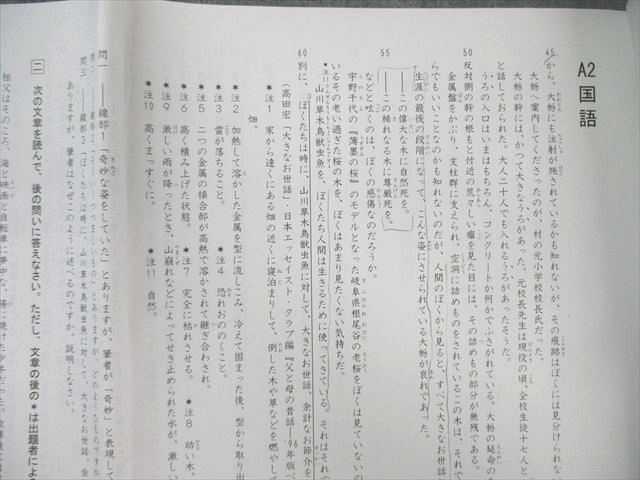 A2国語
45から、大栃にも注射が施されているかも知れないが、その痕跡はぼくには見分けられない
大栃へ案内してくださったのが、村の元小学校校長氏だった。
大栃の幹には、かつて大きなうろがあった。元校長先生は現役の頃、全校生徒十七人と
と話しておられた。大人二十人でも入れるうろがあったそうだ。
うろの入口はいまはもちろん、コンクリートか何かでふさがれている。大栃の延命のた
50 反対側の幹の根もと付近の荒々しい瘤を見た目には、その詰めもの部分が無残である。
金属盤をかぶり、支柱群に支えられ、空洞に詰めものをされているこの木は、それで
らでもいいことなのかも知れないのだが、人間のぼくから見ると、すべて大きなお世話
生涯の最後の段階になって、こんな姿にさせられている大栃が哀れであった。
――この偉大な木に自然死を。
55 ――この稀れなる木に尊厳死を。
などと呟くのは、ぼくの感傷なのだろうか。
宇野千代の『薄墨の桜』のモデルとなった岐阜県根尾谷の老桜をぼくは見ていないの
いるその老い過ぎた桜の木を、ぼくはあまり見たくない気持ちだ。
*注11 山川草木鳥獣虫魚を、ぼくたち人間は生きるために使ってきている。それはそれで
60 別に、ぼくたちは時に、山川草木鳥獣虫魚に対して、大きなお世話、余計なお節介を
(高田宏「大きなお世話」・日本エッセイスト・クラブ編『父と母の昔話―'96年版ベ
*注1 家から遠くにある畑の近くに寝泊まりして、倒した木や草などを燃やして
畑。
*注2 加熱して溶かした金属を型に流しこみ、冷えて固まった後、型から取り出
*注3 雷が落ちること。 *注4 恐れおののくこと。
*注5 二つの金属の接合部が高熱で溶かされて継ぎ合わされ。
*注6 高く積み上げた状態。 *注7 完全に枯れさせる。 *注8 幼い木。
*注9 激しい雨が降ったとき、山崩れなどによってせき止められた水が、激しい
*注10 高くまっすぐに。 *注11 自然。
問一 ――線部1「奇妙な姿をしていた」とありますが、筆者が「奇妙」と表現して
問三 ――線部3「ぼくたちは時に、山川草木鳥獣虫魚に対して、大きなお世話、余
ありますが、筆者はなぜこのように述べるのですか。説明しなさい。
二 次の文章を読んで、後の問いに答えなさい。ただし、文章の後の*は出題者によ